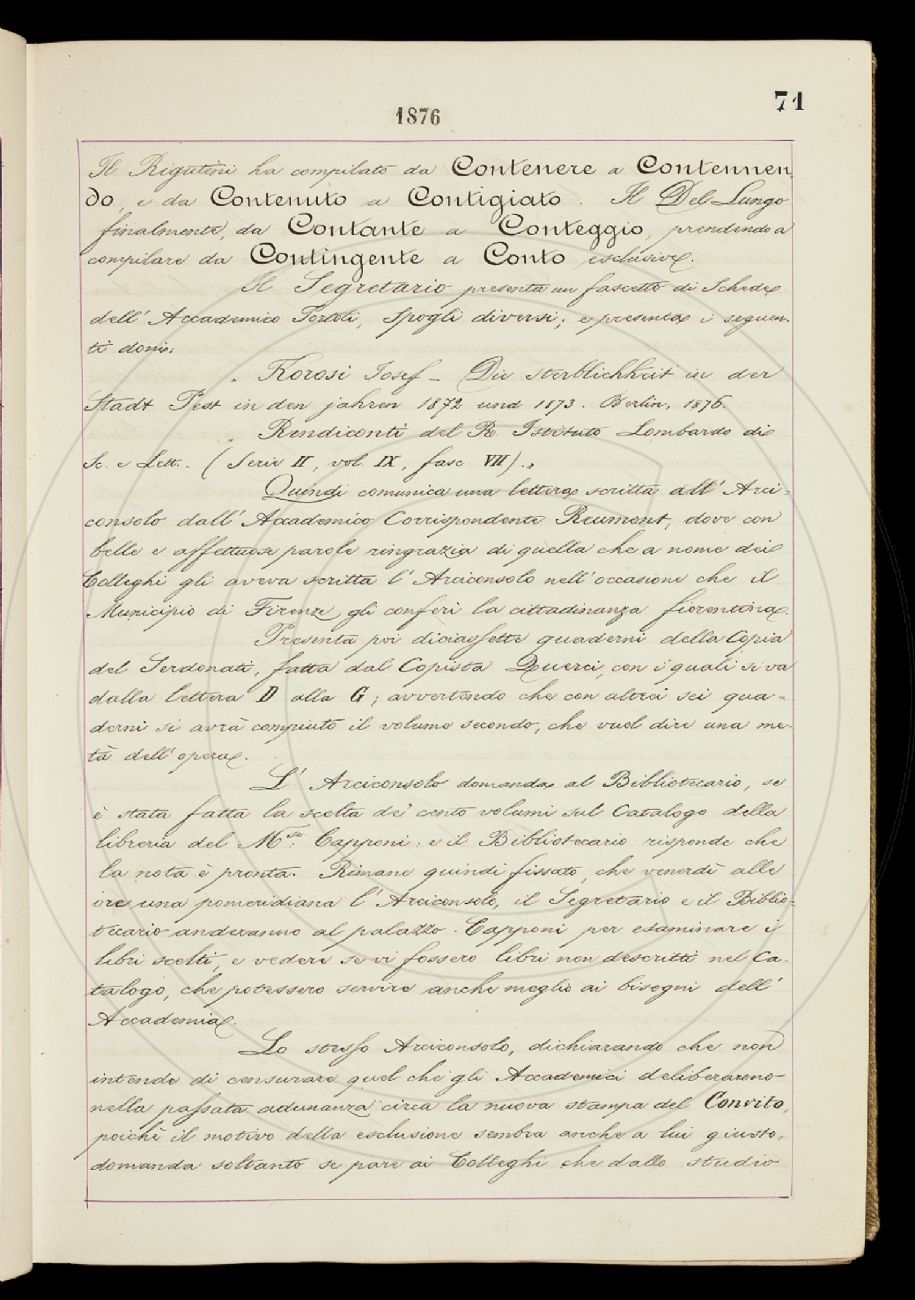 1876
71
Il Rigutini ha compilato da Contenere a Contennen-
do, e da Contenuto a Contigiato. Il Del Lungo
finalmente, da Contante a Conteggio, prendendo a
compilare da Contingente a Conto esclusive.
Il Segretario presenta un fascetto di Schede
dell' Accademico Tortoli, Spogli diversi; e presenta i seguen-
ti doni:
„ Korosi Josef – Die sterblichkeit in der
Stadt Pest in den jahren 1872 und 1873. Berlin, 1876.
„ Rendiconti del R. Istituto Lombardo di
Sc. e Lett. (Serie II, vol. IX, fasc. VII).„
Quindi comunica una lettera scritta all' Arci-
consolo dall' Accademico Corrispondente Reumont, dove con
belle e affettuose parole ringrazia di quella che a nome dei
Colleghi gli aveva scritta l' Arciconsolo nell' occasione che il
Municipio di Firenze gli conferì la cittadinanza fiorentina.
Presenta poi diciassette quaderni della Copia
del Serdonati, fatta dal Copista Querci, con i quali si va
dalla lettera D alla G; avvertendo che con altri sei qua-
derni si avrà compiuto il volume secondo, che vuol dire una me-
tà dell' opera.
L' Arciconsolo domanda al Bibliotecario, se
è stata fatta la scelta de' cento volumi sul Catalogo della
libreria del M.se Capponi: e il Bibliotecario risponde che
la nota è pronta. Rimane quindi fissato, che venerdì alle
ore una pomeridiana l' Arciconsolo, il Segretario e il Biblio-
tecario anderanno al palazzo Capponi per esaminare i
libri scelti, e vedere se vi fossero libri non descritti nel Ca-
talogo, che potessero servire anche meglio ai bisogni dell'
Accademia.
Lo stesso Arciconsolo, dichiarando che non
intende di censurare quel che gli Accademici deliberarono
nella passata adunanza circa la nuova stampa del Convito,
poichè il motivo della esclusione sembra anche a lui giusto,
domanda soltanto se pare ai Colleghi che dallo studio